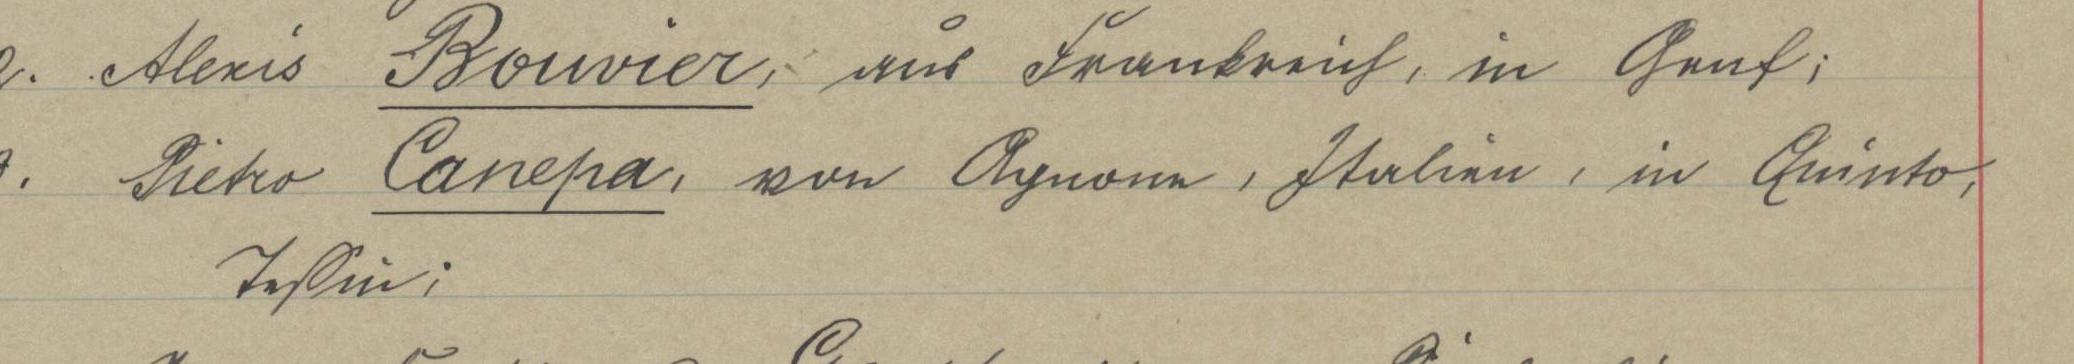 2. Alexis Bouvier, aus Frankreich, in Genf;
3. Pietro Canepa, von Agnone, Italien, in Quinto,
Tessin;